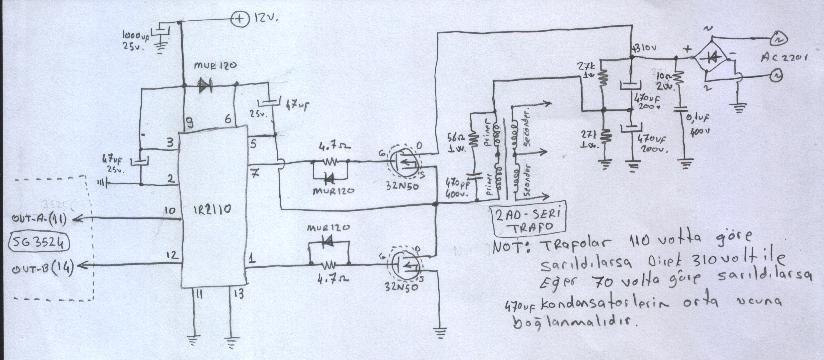 1000uf
25v.
+ 12v.
MUR120
47uf
25v.
47uf
25v.
9
6
3
5
7
2
10
12
1
11
13
IR2110
OUT-A(11)
SG3524
OUT-B(14)
4.7Ω
MUR120
MUR120
4.7Ω
G
D
S
32N50
G
D
S
32N50
56Ω
1w.
470pf
400v.
primer
primer
Seconder
Seconder
2AD-SERI
TRAFO
+310v
27k
1w.
27k
1w.
470uf
200v.
470uf
200v.
10Ω
2w.
0,1uf
400v
+
-
~
2
~
~
AC220v
NOT: TRAFOLAR 110 volta göre
sarıldılarsa Diret 310 volt ile
Eğer 70 volta göre sarıldılarsa
470uf kondansatorlerin orta ucuna
bağlanmalıdır.